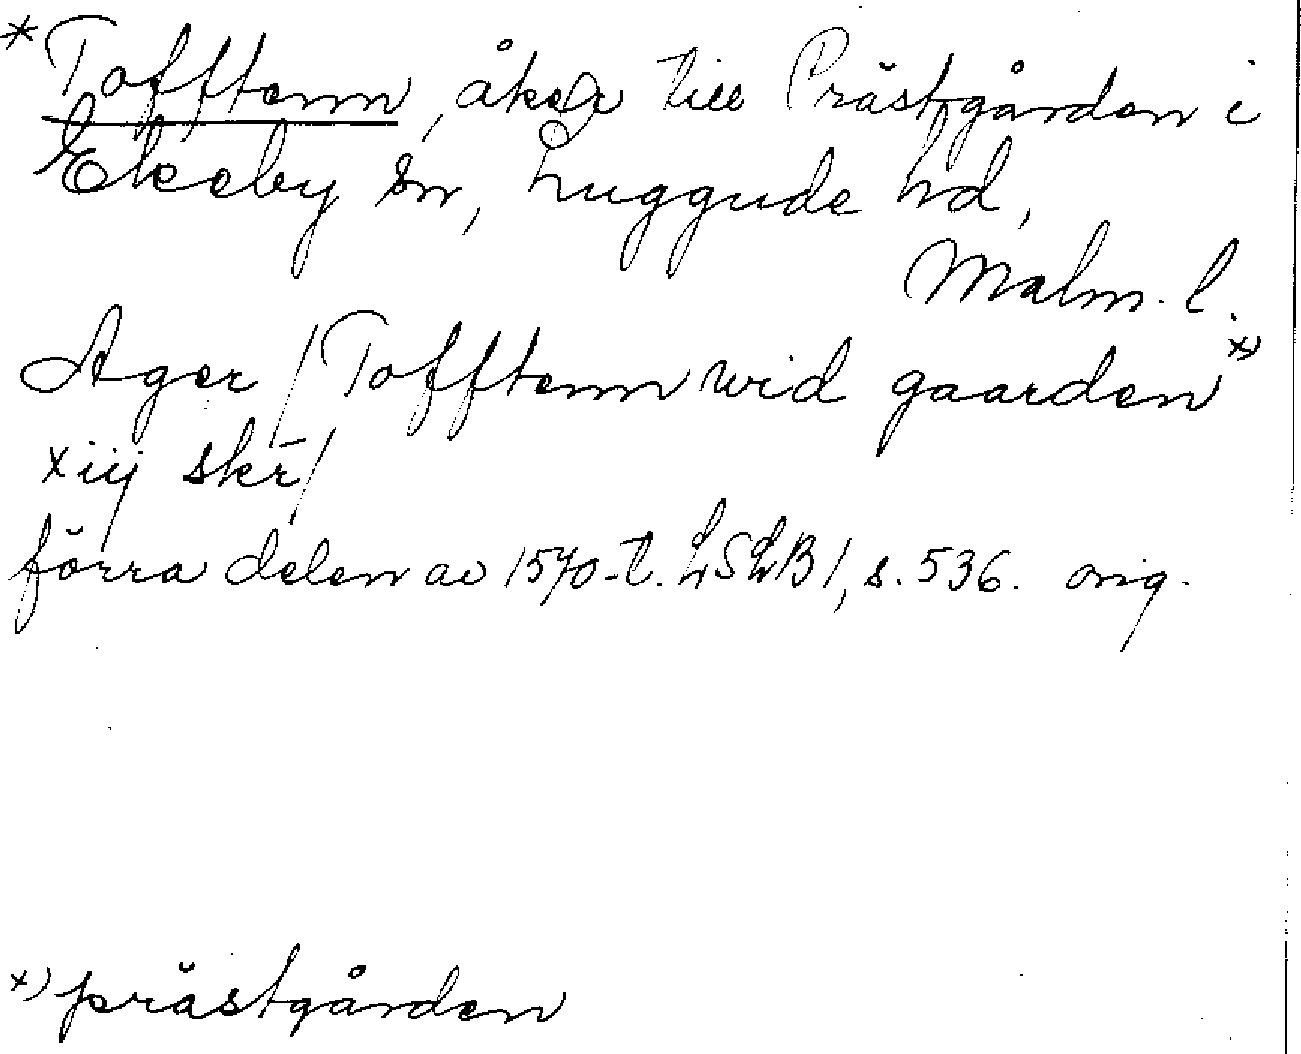 * Tofftenn, åker till Prästgården i
Ekeby sn, Luggude hd,
Malm. l.
Ager / Tofftenn wid gaarden x)
xiij skr̄ /
förra delen av 1570-t. LSLB 1, s. 536. orig.
x) prästgården